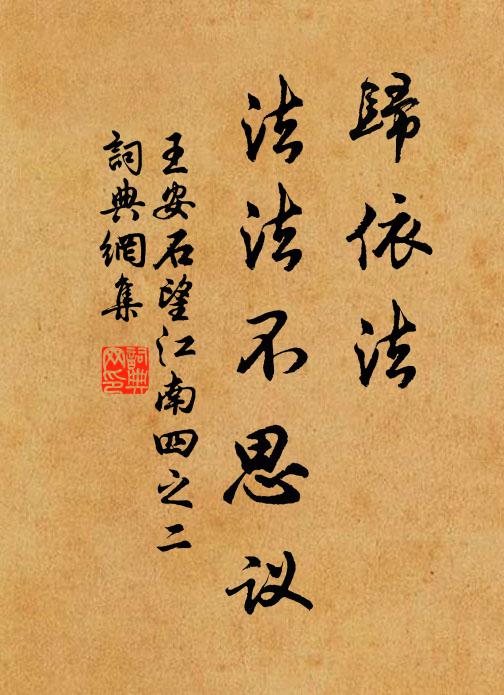 歸依法
法法不思议
王安石望江南四之二
詞典網集
詞典网印